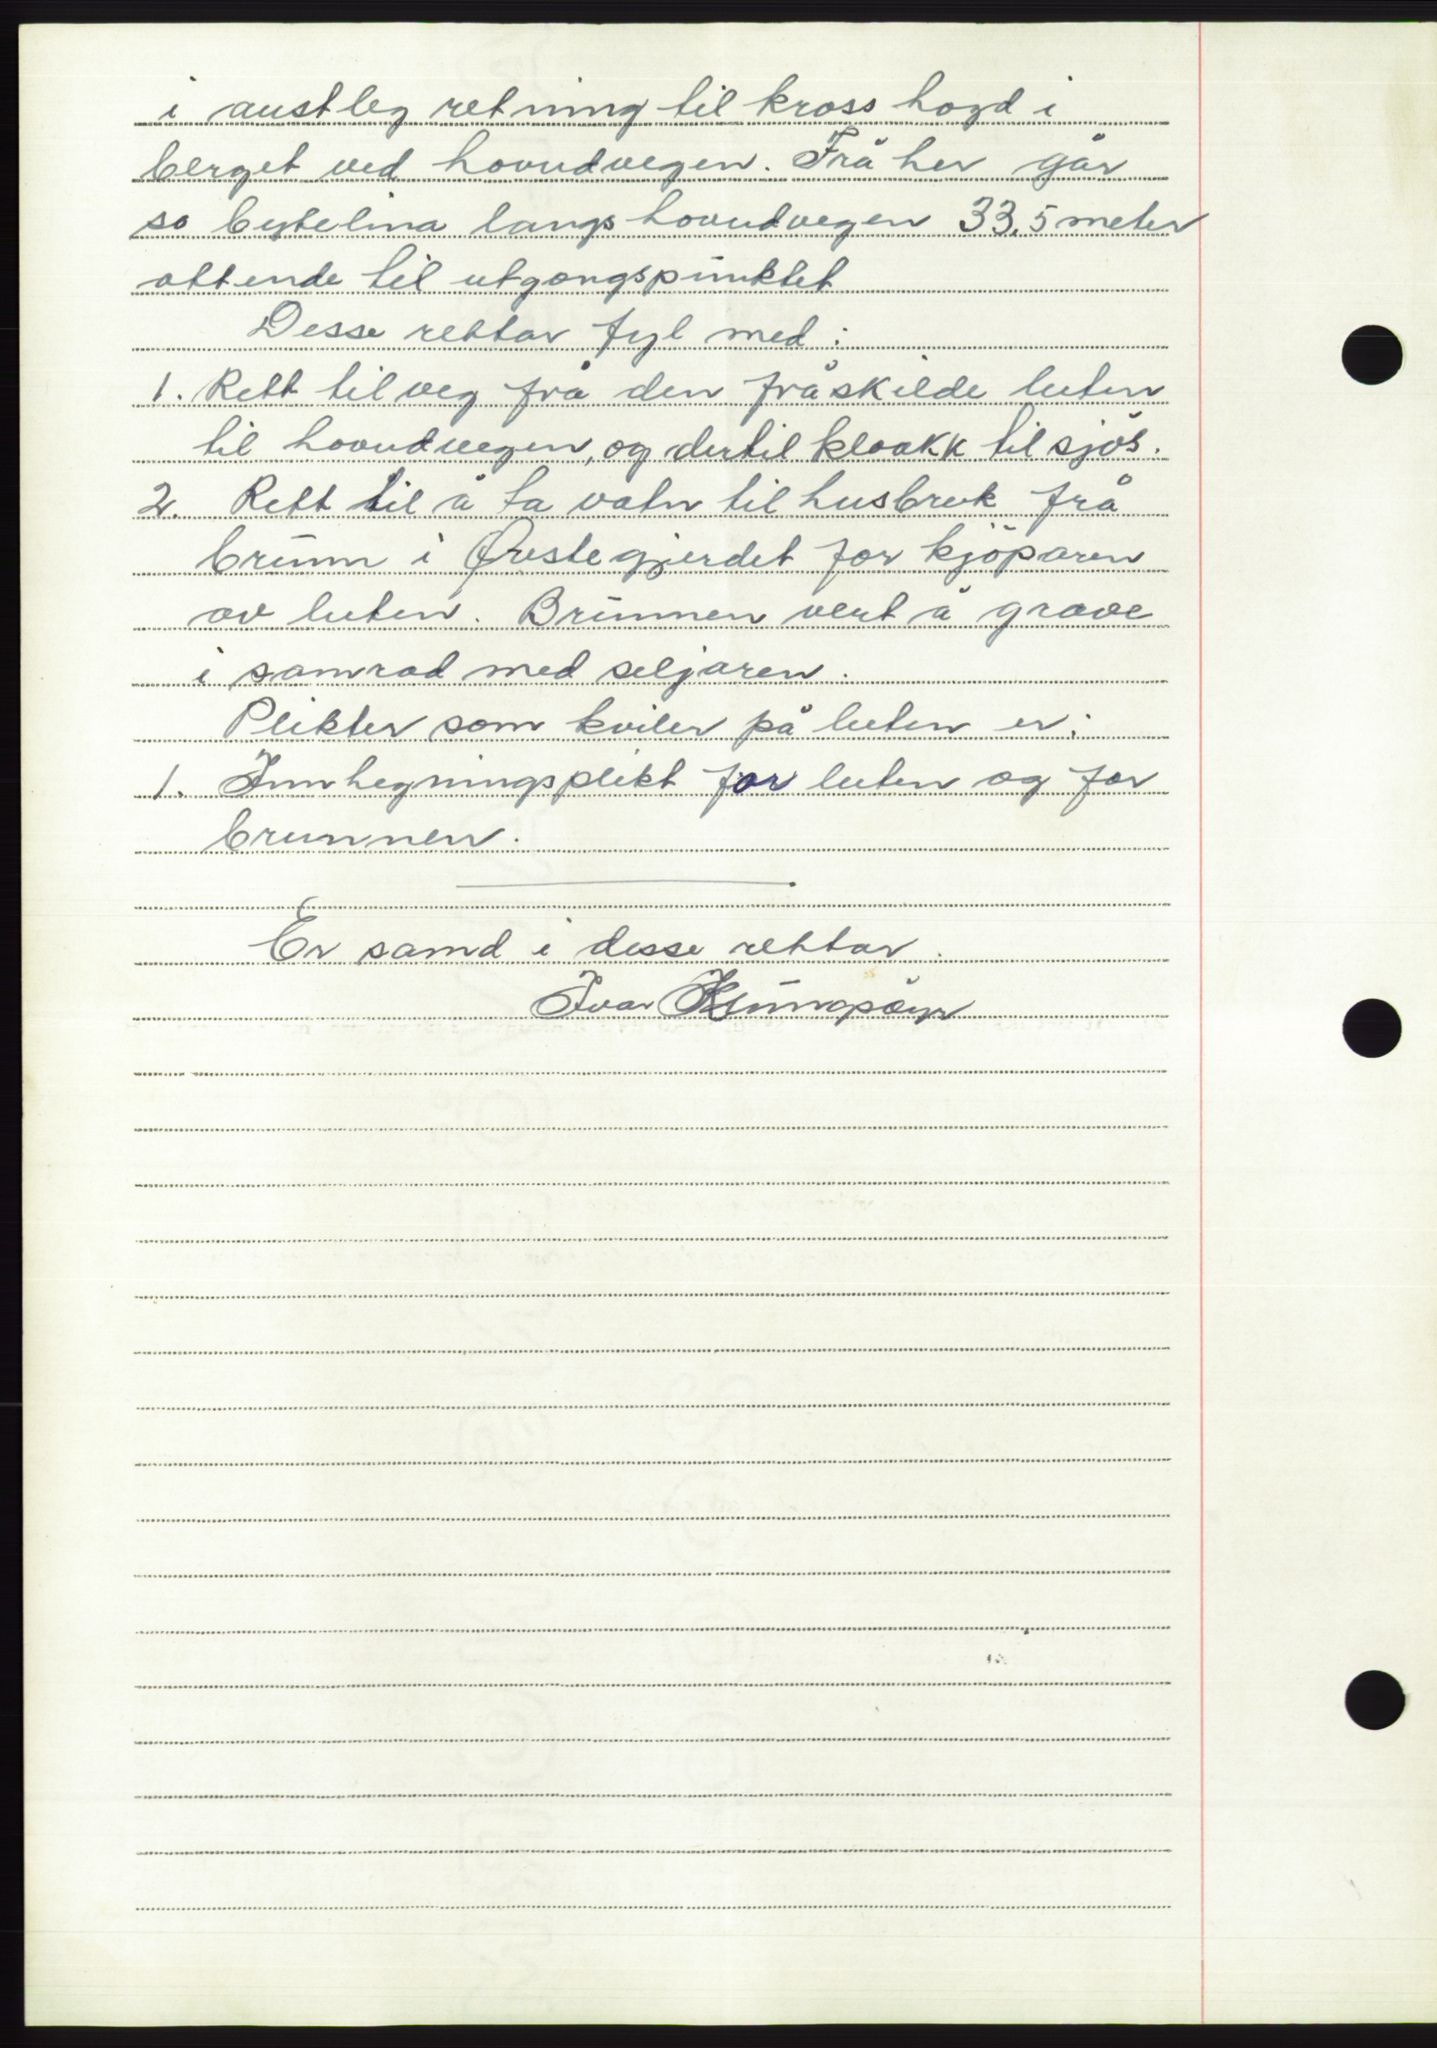 i austleg retning til kross hogd i
berget ved hovudvegen. Frå her går
so bytelina langs hovudvegen 33,5 meter
attende til utgongspunktet
Desse rettar fyl med:
1. Rett til veg frå den fråskilde luten
til hovudvegen, og dertil kloakk til sjøs.
2. Rett til å ta vatn til husbruk frå
brunn i Øvstegjerdet for kjöparen
av luten. Brunnen vert å grave
i samråd med seljaren.
Plikter som kviler på luten er:
1. Innhegningsplikt for luten og for
brunnen.
Er samd i desse rettar.
Ivar Klungsöyr